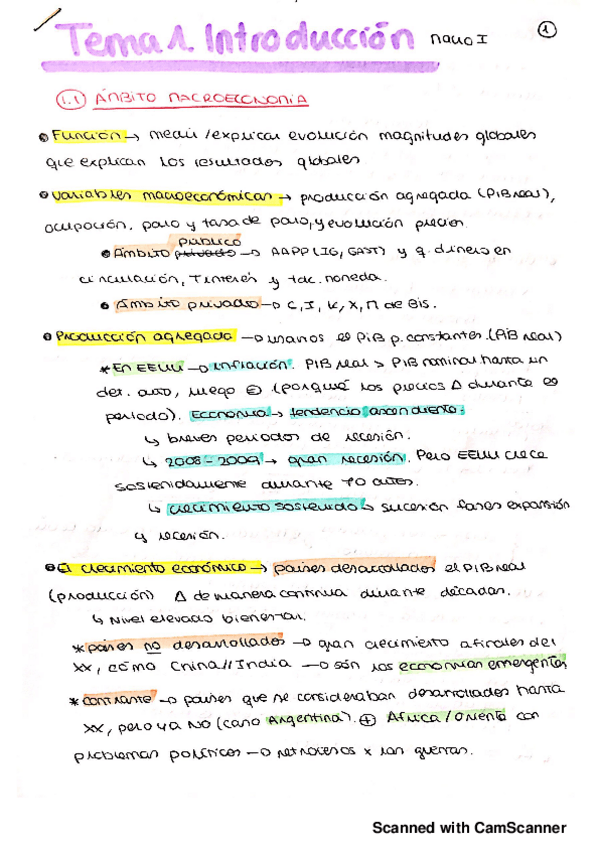 Tema 1. Introducción Macro I 1
1.1 ÁMBITO MACROECONOMIA
Función → medir/explicar evolución magnitudes globales
que explican los resultados globales
Variables macroeconómicas → producción agregada (PIB real),
ocupación, paro y tasa de paro, y evolución precios.
público
Ámbito privado → AAPP (IG, GAST) y q. dinero en
circulación, T interés y t de c. moneda.
Ámbito privado → C, I, K, X, M de Bis.
Producción agregada → usamos el PIB p. constantes. (PIB real)
* En EEUU → inflación. PIB real > PIB nominal hasta un
det. año, luego (porque los precios Δ durante el
periodo). Economía → tendencia ascendente:
↳ breves periodos de recesión.
↳ 2008-2009 → gran recesión. Pero EEUU crece
sostenidamente durante 70 años.
↳ crecimiento sostenido ↳ sucesión fases expansión
y recesión.
El crecimiento económico → países desarrollados el PIB real
(producción) Δ de manera continua durante décadas.
↳ Nivel elevado bienestar.
* países no desarrollados → gran crecimiento a finales del
XX, como China//India → són las economías emergentes
* contraste → países que se consideraban desarrollados hasta
XX, pero ya NO (caso Argentina). ⊕ África/Oriente con
problemas políticos → retrocesos x las guerras.
Scanned with CamScanner